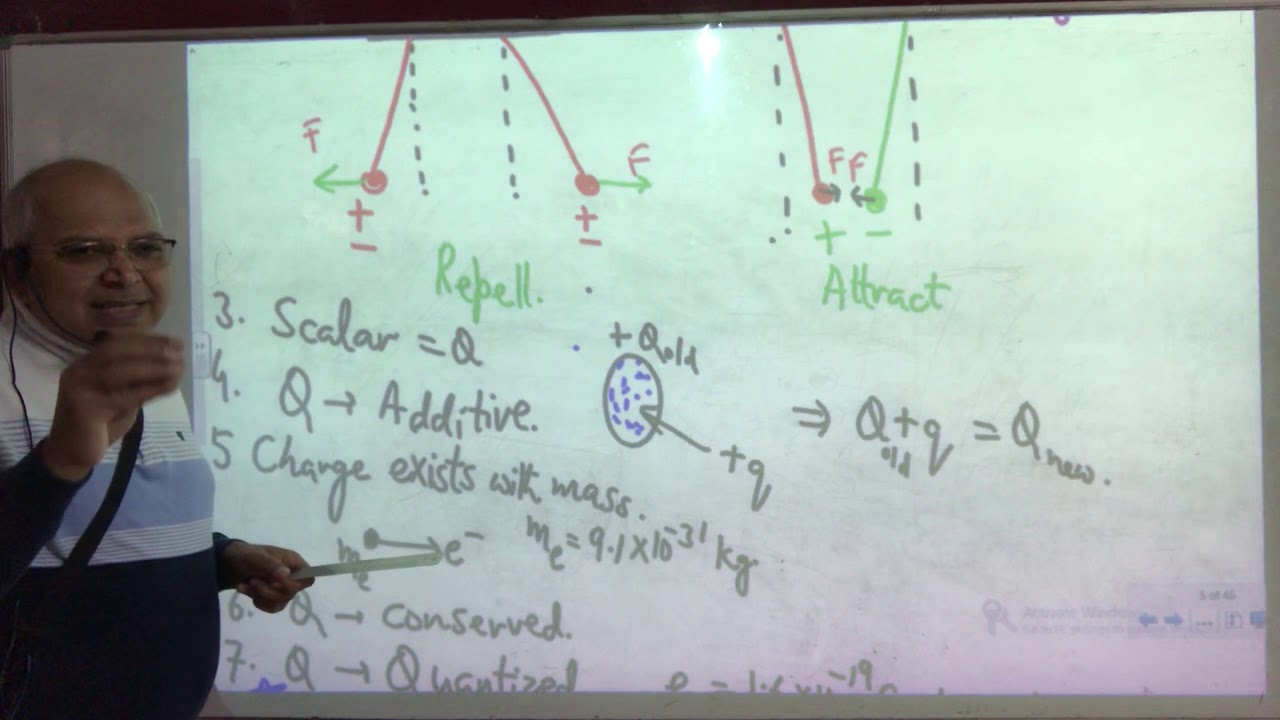 F F F F
+ + + -
- -
Repell. Attract
3. Scalar = Q
+ Qold
4. Q → Additive.
+q
⇒ Qold + q = Qnew.
5 Charge exists with mass.
me e⁻ me = 9.1 × 10⁻³¹ kg.
6. Q → conserved.
7. Q → Quantized
5 of 46
Activate Windows